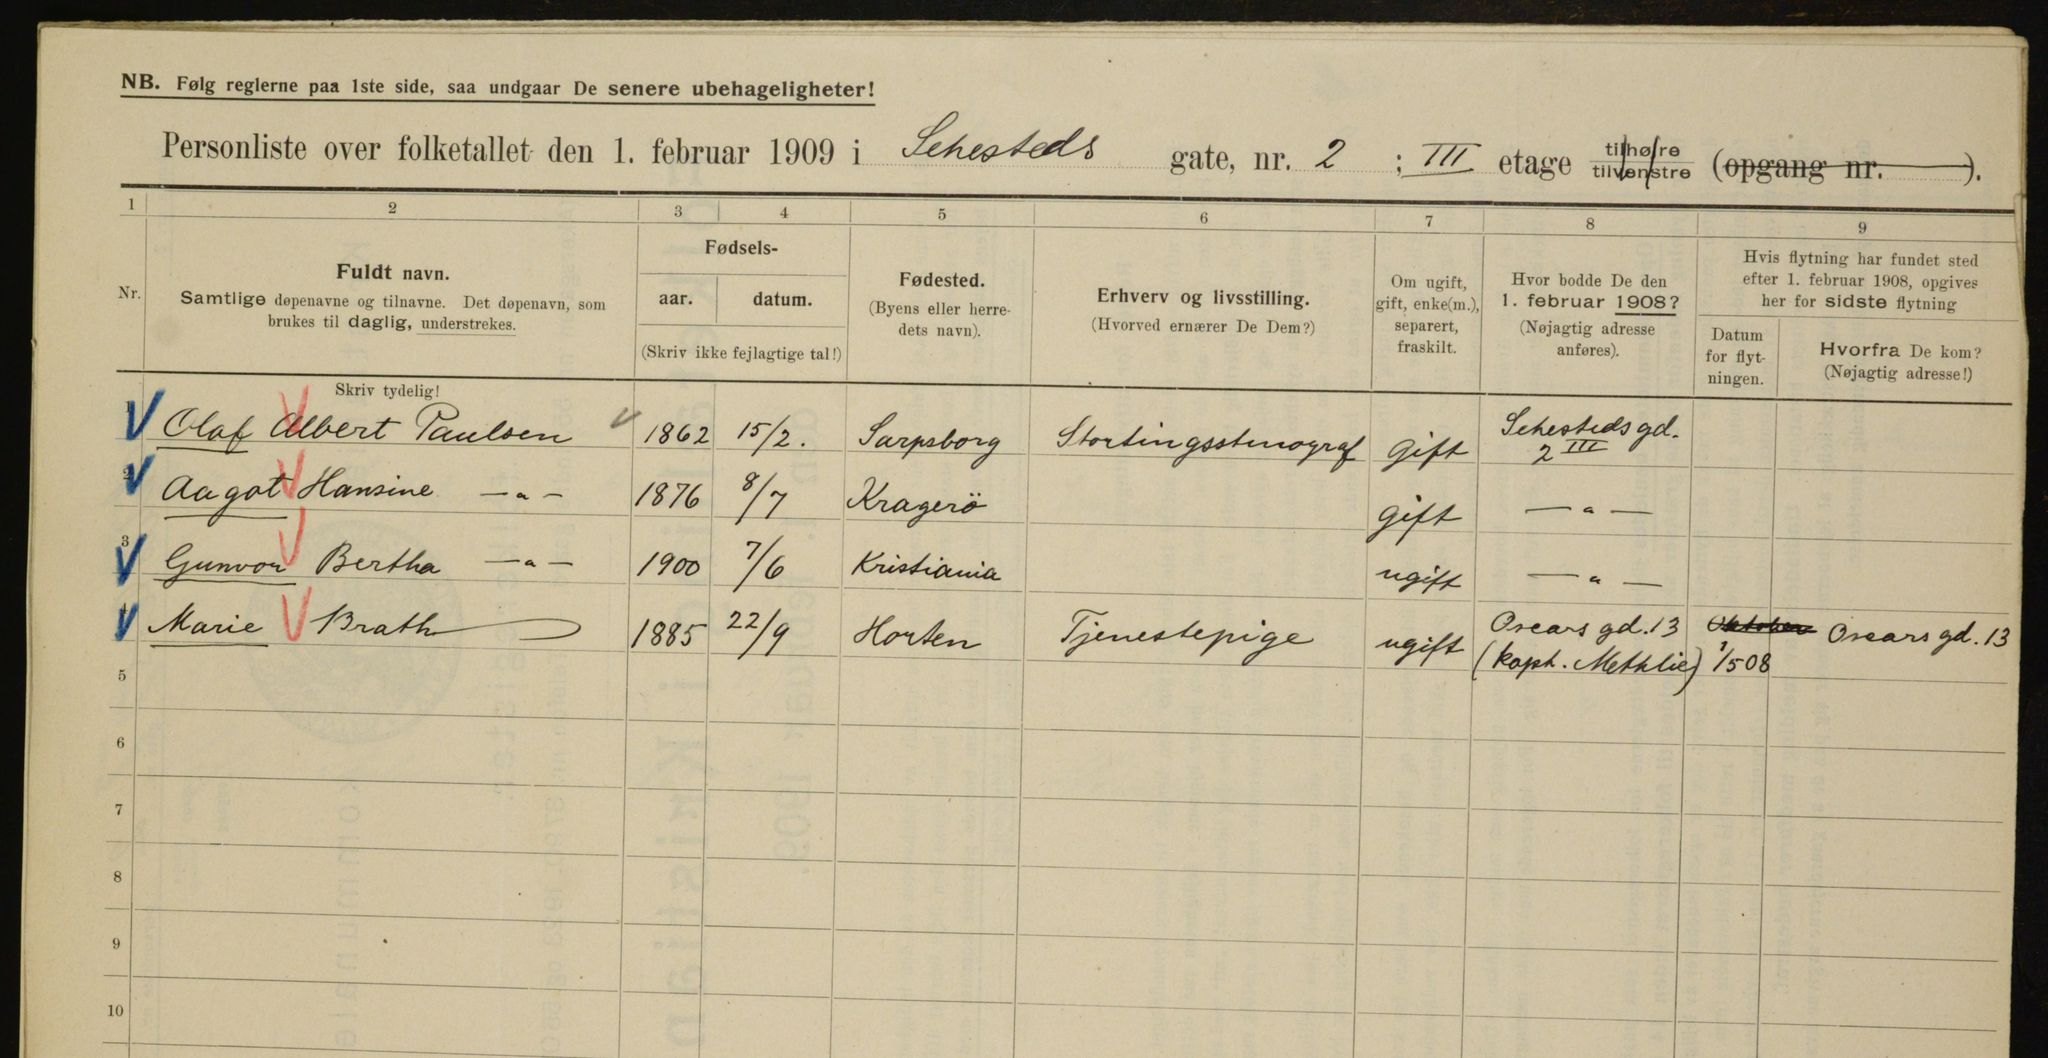 NB. Følg reglerne paa 1ste side, saa undgaar De senere ubehageligheter!
Personliste over folketallet den 1. februar 1909 i Sehesteds gate, nr. 2 ; III etage tilhøire tilvenstre (opgang nr. ).
1 2 3 4 5 6 7 8 9
Nr.
Fuldt navn.
Samtlige døpenavne og tilnavne. Det døpenavn, som
brukes til daglig, understrekes.
Skriv tydelig!
Fødsels-
aar. datum.
(Skriv ikke fejlagtige tal!)
Fødested.
(Byens eller herre-
dets navn).
Erhverv og livsstilling.
(Hvorved ernærer De Dem?)
Om ugift,
gift, enke(m.),
separert,
fraskilt.
Hvor bodde De den
1. februar 1908?
(Nøjagtig adresse
anføres).
Hvis flytning har fundet sted
efter 1. februar 1908, opgives
her for sidste flytning
Datum
for flyt-
ningen.
Hvorfra De kom?
(Nøjagtig adresse!)
1 Olaf Albert Paulsen 1862 15/2. Sarpsborg Stortingsstenograf gift Sehesteds gd. 2 III
2 Aagot Hansine —„— 1876 8/7 Kragerö gift —„—
3 Gunvor Bertha —„— 1900 7/6 Kristiania ugift —„—
4 Marie Brath 1885 22/9 Horten Tjenestepige ugift Oscars gd. 13 (kapt. Methlie) Oktober 1/5 08 Oscars gd. 13
5
6
7
8
9
10